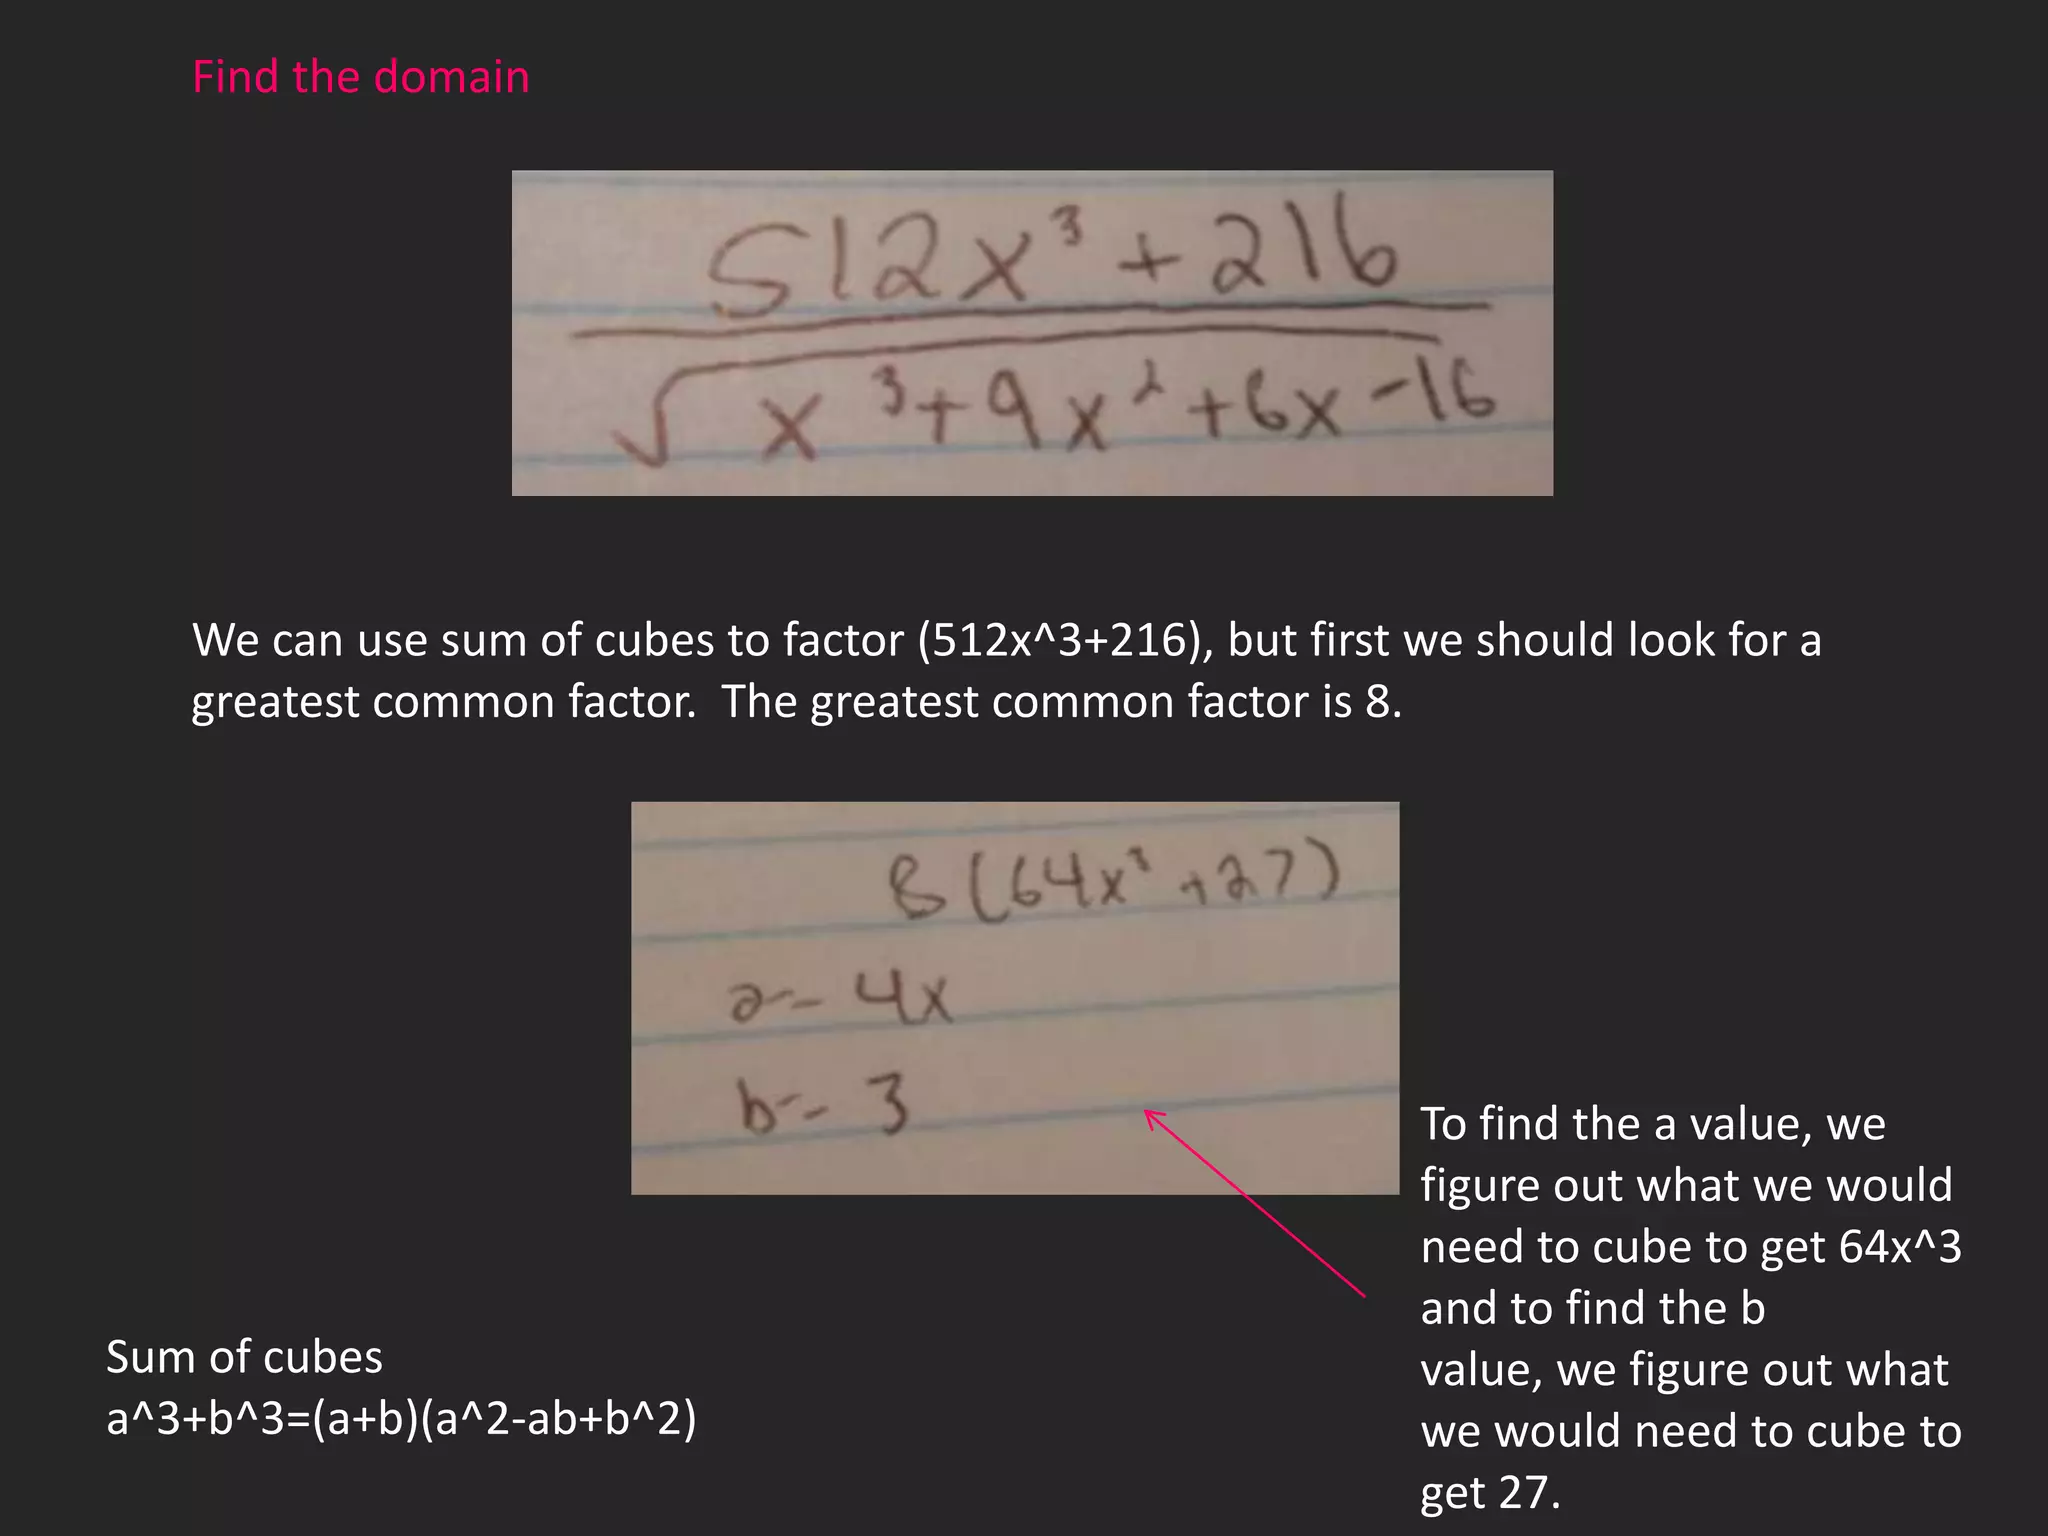 Find the domain
512x³ + 216
√x³+9x²+6x-16
We can use sum of cubes to factor (512x^3+216), but first we should look for a
greatest common factor.  The greatest common factor is 8.
8(64x³+27)
a= 4x
b= 3
To find the a value, we
figure out what we would
need to cube to get 64x^3
and to find the b
value, we figure out what
we would need to cube to
get 27.
Sum of cubes
a^3+b^3=(a+b)(a^2-ab+b^2)